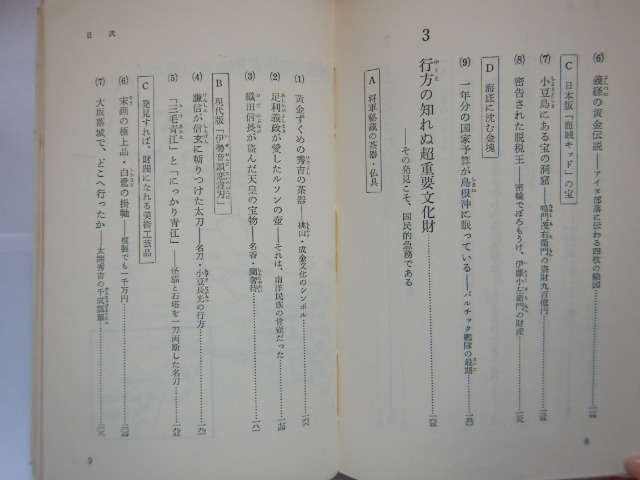 (6) 義経の黄金伝説——アイヌ部落に伝わる四枚の絵図
C 日本版「海賊キッド」の宝
(7) 小豆島にある宝の洞窟——鳴門茂右衛門の盗財九百億円
(8) 密告された脱税王——密輸でぼろもうけ、伊藤小左衛門の財産
D 海底に沈む金塊
(9) 一年分の国家予算が島根沖に眠っている——バルチック艦隊の最期
3 行方の知れぬ超重要文化財
——その発見こそ、国民的急務である
A 将軍秘蔵の茶器・仏具
8
目次
(1) 黄金ずくめの秀吉の茶器——桃山・成金文化のシンボル
(2) 足利義政が愛したルソンの壺——それは、南洋民族の骨壺だった
(3) 織田信長が盗んだ天皇の宝物——名香・蘭奢待
B 現代版「伊勢音頭恋寝刃」
(4) 謙信が信玄に斬りつけた太刀——名刀・小豆長光の行方
(5) 「三毛青江」と「にっかり青江」——怪猫と石塔を一刀両断した名刀
C 発見すれば、財閥になれる美術工芸品
(6) 宋画の極上品・白鷺の掛軸——模製でも一千万円
(7) 大坂落城で、どこへ行ったか——太閤秀吉の千成瓢箪
9